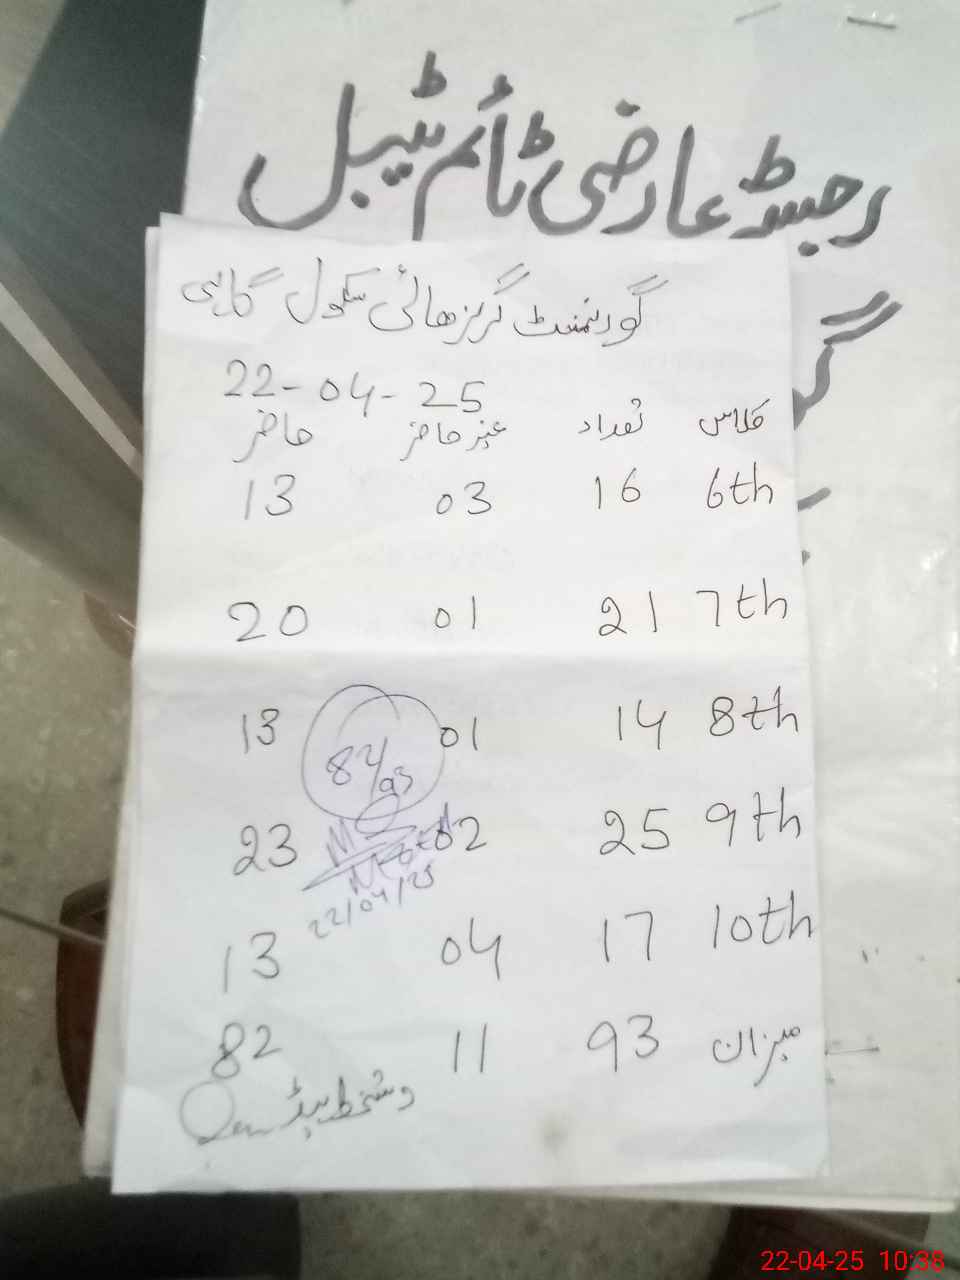 رجسٹر عارضی ٹائم ٹیبل
گورنمنٹ گرلز ھائی سکول گاہی
22-04-25
کلاس تعداد غیر حاضر حاضر
6th 16 03 13
7th 21 01 20
8th 14 01 13
9th 25 02 23
10th 17 04 13
میزان 93 11 82
82/93
22/04/25
دستخط ہیڈ
22-04-25 10:38